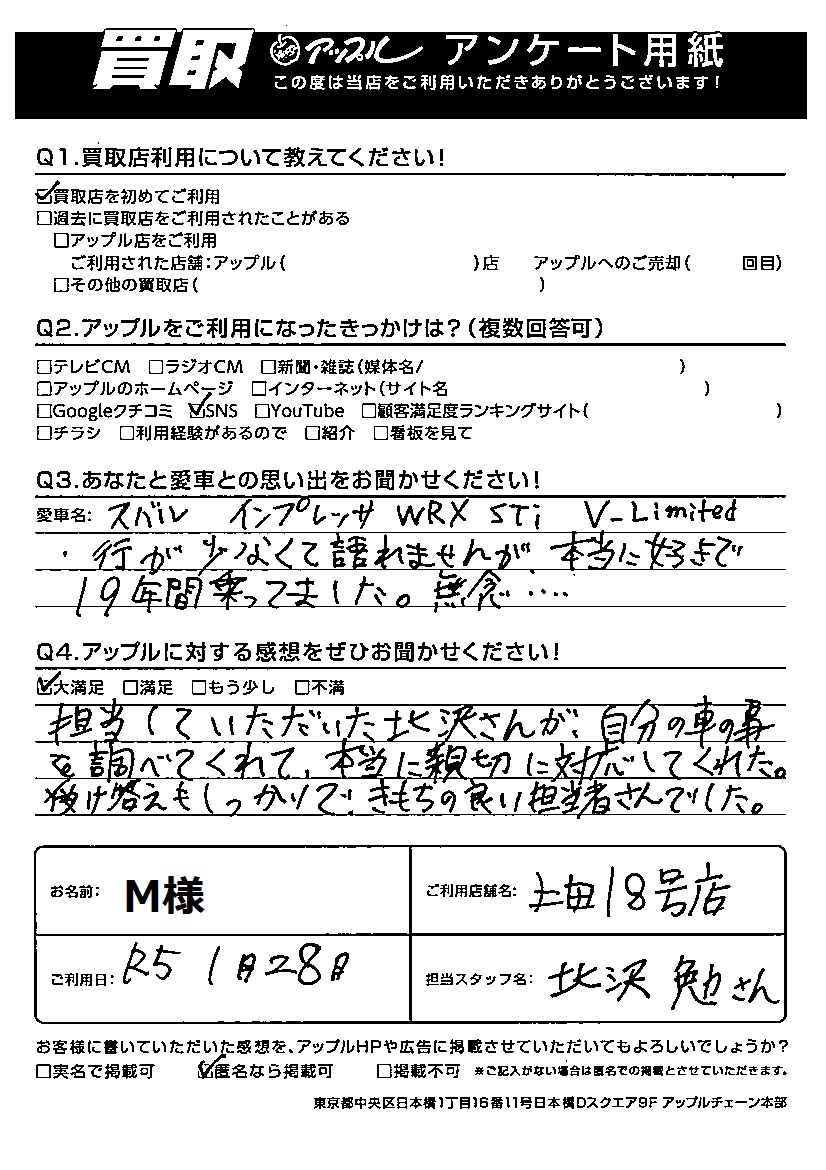 買取 アップル アンケート用紙
この度は当店をご利用いただきありがとうございます!
Q1.買取店利用について教えてください!
☑買取店を初めてご利用
□過去に買取店をご利用されたことがある
□アップル店をご利用
ご利用された店舗:アップル( )店 アップルへのご売却( 回目)
□その他の買取店( )
Q2.アップルをご利用になったきっかけは?(複数回答可)
□テレビCM □ラジオCM □新聞・雑誌(媒体名/ )
□アップルのホームページ □インターネット(サイト名 )
□Googleクチコミ ☑SNS □YouTube □顧客満足度ランキングサイト( )
□チラシ □利用経験があるので □紹介 □看板を見て
Q3.あなたと愛車との思い出をお聞かせください!
愛車名: スバル インプレッサ WRX STi V-Limited
・行が少なくて語れませんが、本当に好きで
19年間乗ってました。無念・・・・
Q4.アップルに対する感想をぜひお聞かせください!
☑大満足 □満足 □もう少し □不満
担当していただいた北沢さんが、自分の車の事
を調べてくれて、本当に親切に対応してくれた。
受け答えもしっかりで、きもちの良い担当者さんでした。
お名前: M様 ご利用店舗名: 上田18号店
ご利用日: R5 1月28日 担当スタッフ名: 北沢 勉さん
お客様に書いていただいた感想を、アップルHPや広告に掲載させていただいてもよろしいでしょうか?
□実名で掲載可 ☑匿名なら掲載可 □掲載不可 ※ご記入がない場合は匿名での掲載とさせていただきます。
東京都中央区日本橋1丁目16番11号日本橋Dスクエア9F アップルチェーン本部